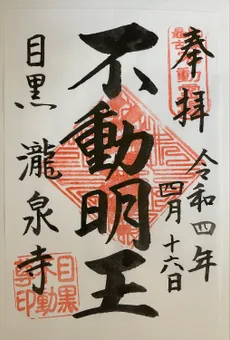 奉拝
令和四年
四月十六日
不動明王
目黒
瀧泉寺
目黒
不動